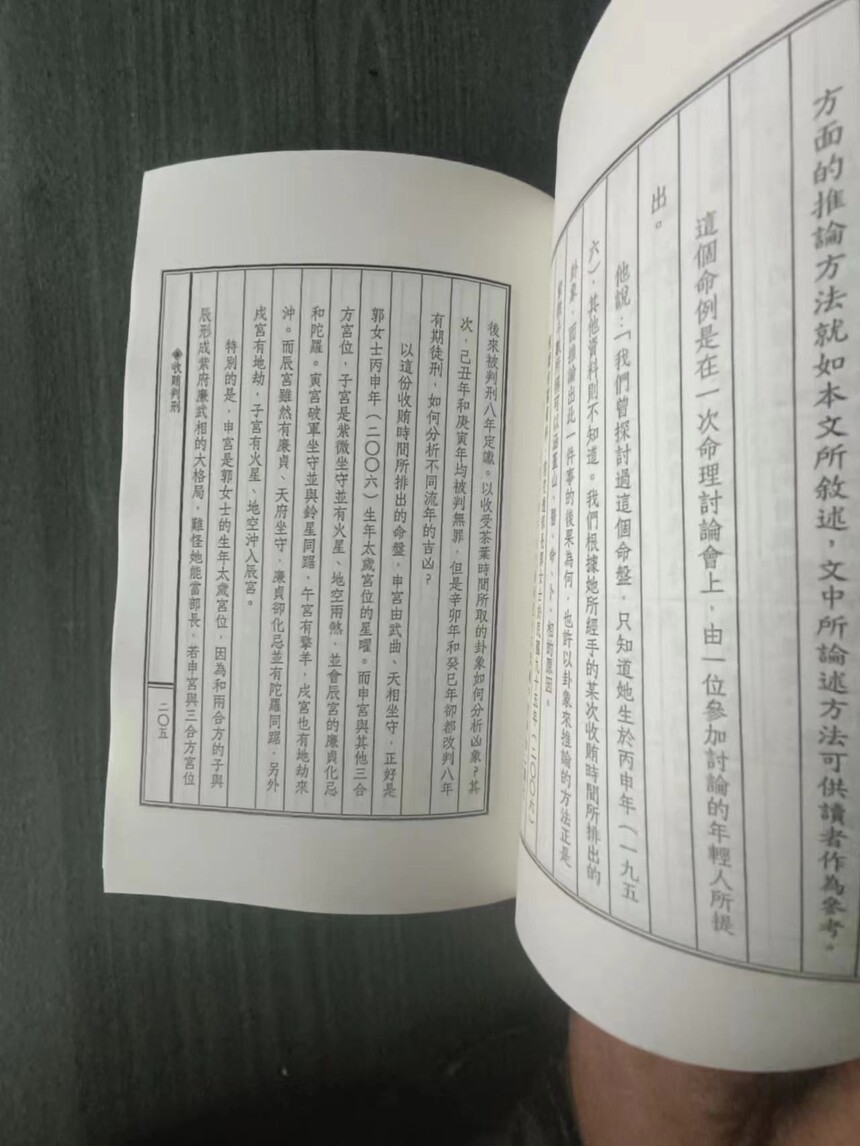 方面的推論方法就如本文所敘述，文中所論述方法可供讀者作為參考。
這個命例是在一次命理討論會上，由一位參加討論的年輕人所提
出。
他說：「我們曾探討過這個命盤，只知道她生於丙申年（一九五
六），其他資料則不知道。我們根據她所經手的某次收賄時間所排出的
卦象，而推論出此一件事的後果為何，也許以卦象來推論的方法正是
山、醫、命、卜、相的原因。
九十五年（二〇〇六）
後來被判刑八年定讞。以收受茶葉時間所取的卦象如何分析凶象？其
次，己丑年和庚寅年均被判無罪，但是辛卯年和癸巳年卻都改判八年
有期徒刑，如何分析不同流年的吉凶？
以這份收賄時間所排出的命盤，申宮由武曲、天相坐守，正好是
郭女士丙申年（二〇〇六）生年太歲宮位的星曜。而申宮與其他三合
方宮位，子宮是紫微坐守並有火星、地空兩煞，並會辰宮的廉貞化忌
和陀羅。寅宮破軍坐守並與鈴星同躔，午宮有擎羊，戌宮也有地劫來
沖。而辰宮雖然有廉貞、天府坐守，廉貞卻化忌並有陀羅同躔，另外
戌宮有地劫，子宮有火星、地空沖入辰宮。
特別的是，申宮是郭女士的生年太歲宮位，因為和兩合方的子與
辰形成紫府廉武相的大格局，難怪她能當部長，若申宮與三合方宮位
◈收賄判刑
二〇五